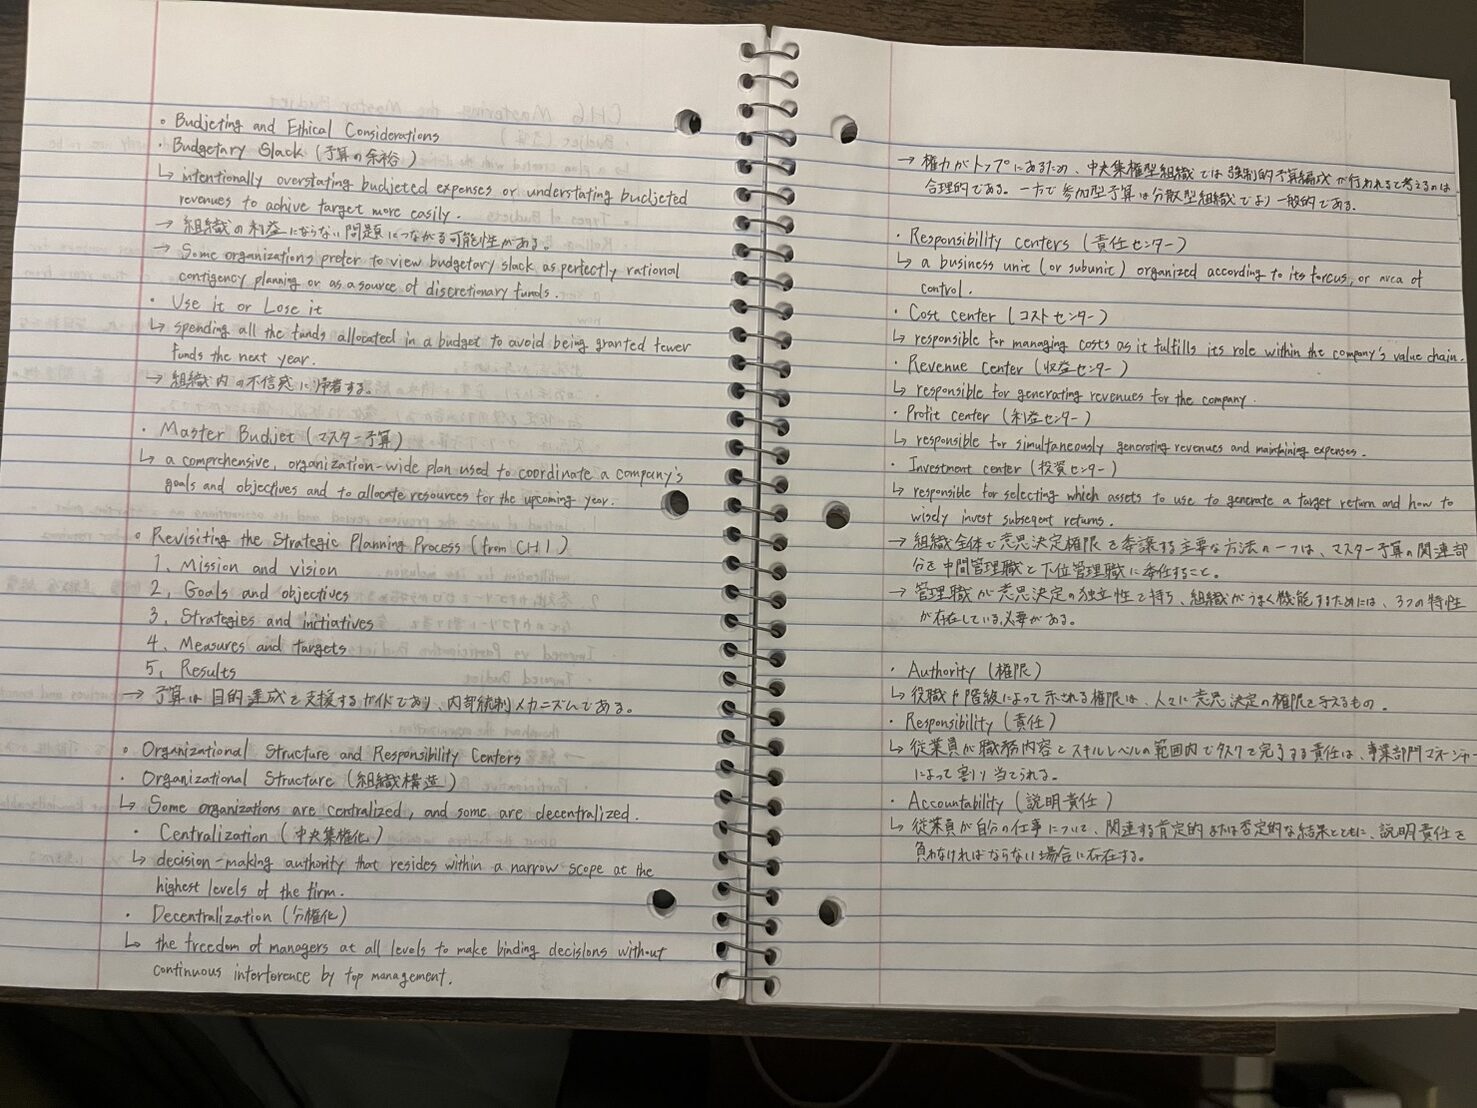 • Budjeting and Ethical Considerations
• Budgetary Slack (予算の余裕)
↳ intentionally overstating budjeted expenses or understating budjeted
revenues to achive target more easily.
→ 組織の利益にならない問題につながる可能性がある。
→ Some organizations prefer to view budgetary slack as perfectly rational
contigency planning or as a source of discretionary funds.
• Use it or Lose it
↳ spending all the funds allocated in a budget to avoid being granted fewer
funds the next year.
→ 組織内の不信感に帰着する。
• Master Budjet (マスター予算)
↳ a comprehensive, organization-wide plan used to coordinate a company's
goals and objectives and to allocate resources for the upcoming year.
• Revisiting the Strategic Planning Process (from CH1)
1、Mission and vision
2、Goals and objectives
3、Strategies and initiatives
4、Measures and targets
5、Results
→ 予算は目的達成を支援するガイドであり、内部統制メカニズムである。
• Organizational Structure and Responsibility Centers
• Organizational Structure (組織構造)
↳ Some organizations are centralized, and some are decentralized.
• Centralization (中央集権化)
↳ decision-making authority that resides within a narrow scope at the
highest levels of the firm.
• Decentralization (分権化)
↳ the freedom of managers at all levels to make binding decisions without
continuous interference by top management.
→ 権力がトップにあるため、中央集権型組織では強制的予算編成が行われると考えるのは
合理的である。一方で参加型予算は分散型組織でより一般的である。
• Responsibility centers (責任センター)
↳ a business unit (or subunit) organized according to its forcus, or area of
control.
• Cost center (コストセンター)
↳ responsible for managing costs as it fulfills its role within the company's value chain.
• Revenue Center (収益センター)
↳ responsible for generating revenues for the company.
• Profit center (利益センター)
↳ responsible for simultaneously generating revenues and maintining expenses.
• Investment center (投資センター)
↳ responsible for selecting which assets to use to generate a target return and how to
wisely invest subseqent returns.
→ 組織全体で意思決定権限を委譲する主要な方法の一つは、マスター予算の関連部
分を中間管理職と下位管理職に委任すること。
→ 管理職が意思決定の独立性を持ち、組織がうまく機能するためには、3つの特性
が存在している必要がある。
• Authority (権限)
↳ 役職や階級によって示される権限は、人々に意思決定の権限を与えるもの。
• Responsibility (責任)
↳ 従業員が職務内容とスキルレベルの範囲内でタスクを完了する責任は、事業部門マネージャー
によって割り当てられる。
• Accountability (説明責任)
↳ 従業員が自分の仕事について、関連する肯定的または否定的な結果とともに、説明責任を
負わなければならない場合に存在する。